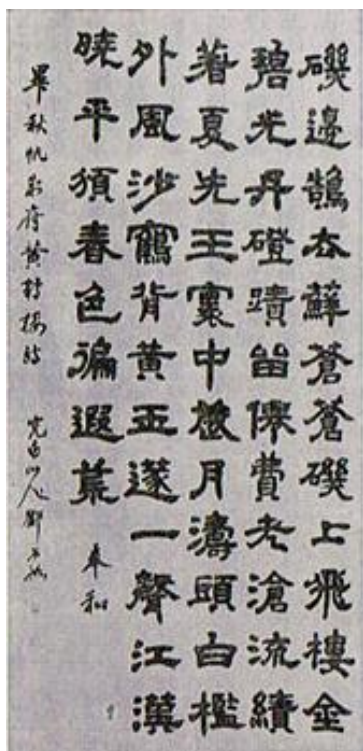 磯邊鵠太蘚蒼蒼磯上飛樓金
碧光丹磴蹟留費老滄流績
著夏先王寰中月濤頭白檻
外風沙鶴背黃玉篴一聲江漢
曉平須春色徧遐荒 奉和
畢秋帆制府黃鶴樓詩 完白山人鄧石如